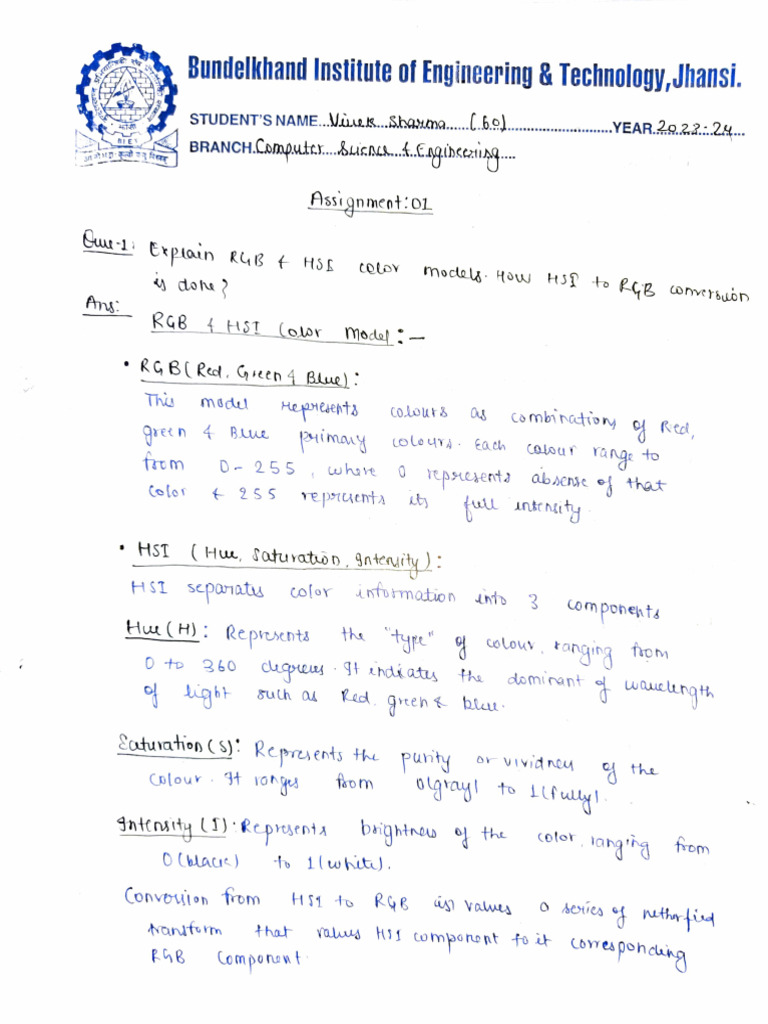 Bundelkhand Institute of Engineering & Technology, Jhansi.
STUDENT'S NAME Vivek Sharma (60) YEAR 2023-24
BRANCH Computer Science & Engineering
BIET
Assignment: 01
Que-1: Explain RGB & HSI color models. How HSI to RGB conversion
is done?
Ans:
RGB & HSI Color Model: —
• RGB (Red, Green & Blue):
This model represents colours as combinations of Red,
green & Blue primary colours. Each colour range to
from 0-255, where 0 represents absense of that
color & 255 represents its full intensity.
• HSI (Hue, Saturation, Intensity):
HSI separates color information into 3 components
Hue (H): Represents the "type" of colour, ranging from
0 to 360 degrees. It indicates the dominant of wavelength
of light such as Red, green & blue.
Saturation (S): Represents the purity or vividness of the
colour. It ranges from 0(gray) to 1(fully).
Intensity (I): Represents brightness of the color, ranging from
0(black) to 1(white).
Conversion from HSI to RGB values a series of
transform that values HSI component to it corresponding
RGB Component.